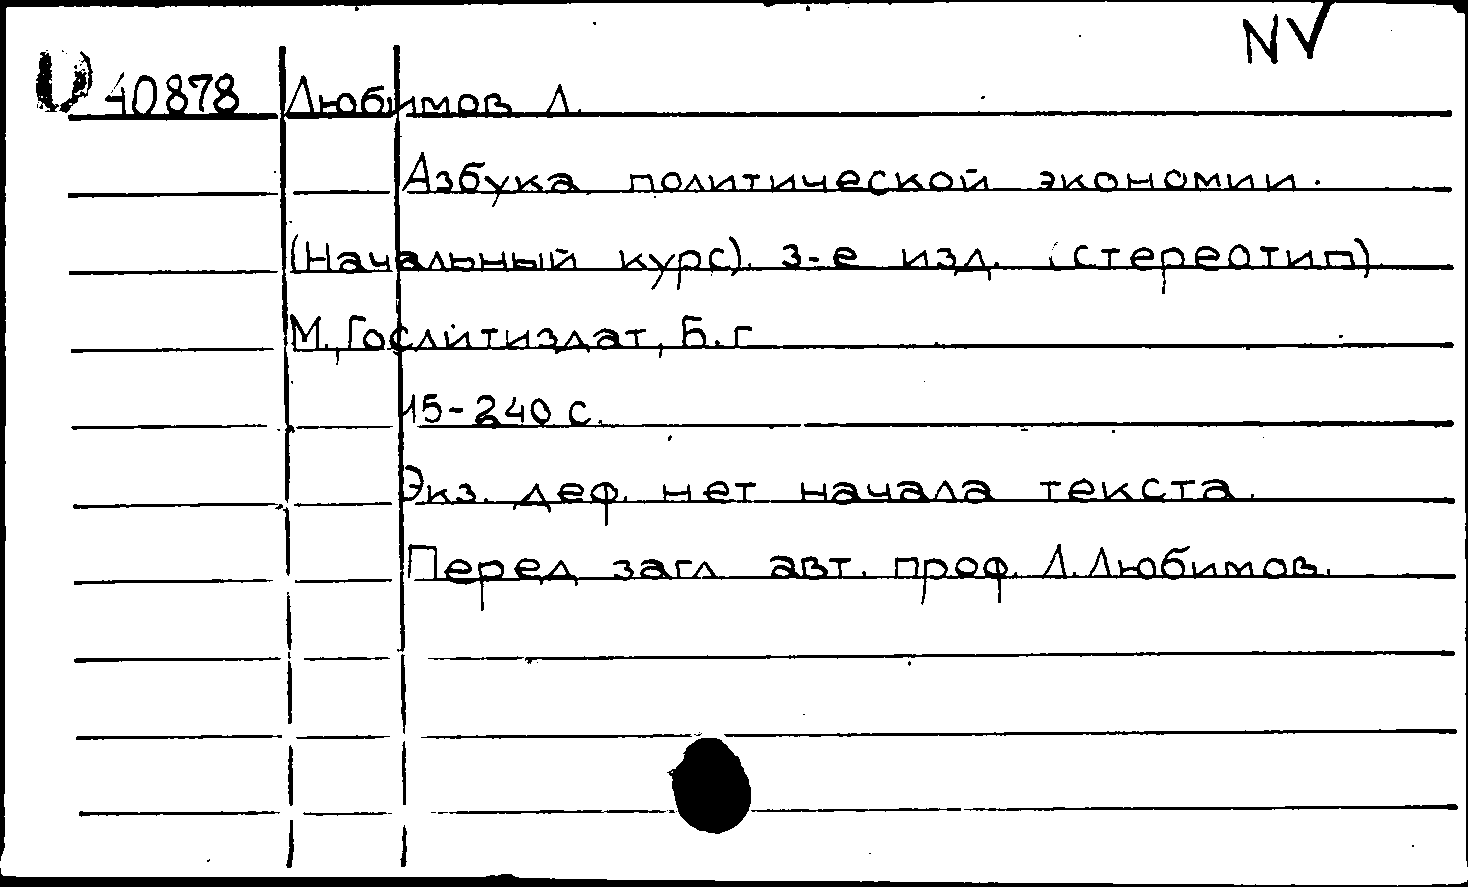 NV
D 40878 Любимов Л.
Азбука политической экономии.
(Начальный курс). 3-е изд. (стереотип)
М., Гослитиздат, Б.г
15-240 с.
Экз. деф. нет начала текста.
Перед загл авт. проф. Л. Любимов.